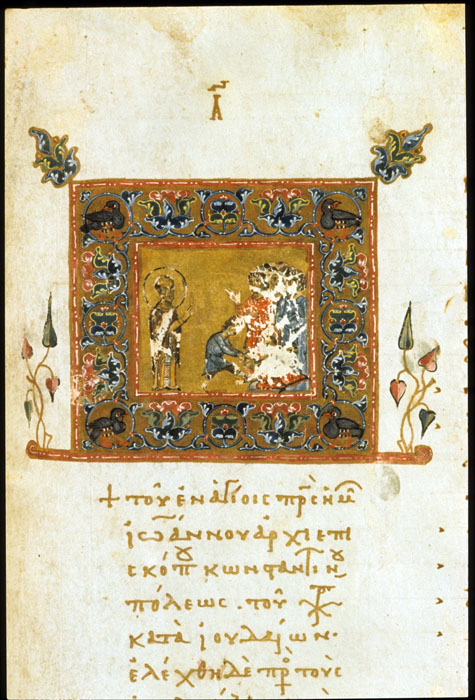 Α
+ τοῦ ἐν ἁγίοις πρ̅ς ἡμ
ἰωάννου ἀρχιεπι
σκόπου κωνσταντινου
πόλεως. τοῦ
κατὰ ἰουδαίων·
ἐλέχθη δὲ πρ τοὺς